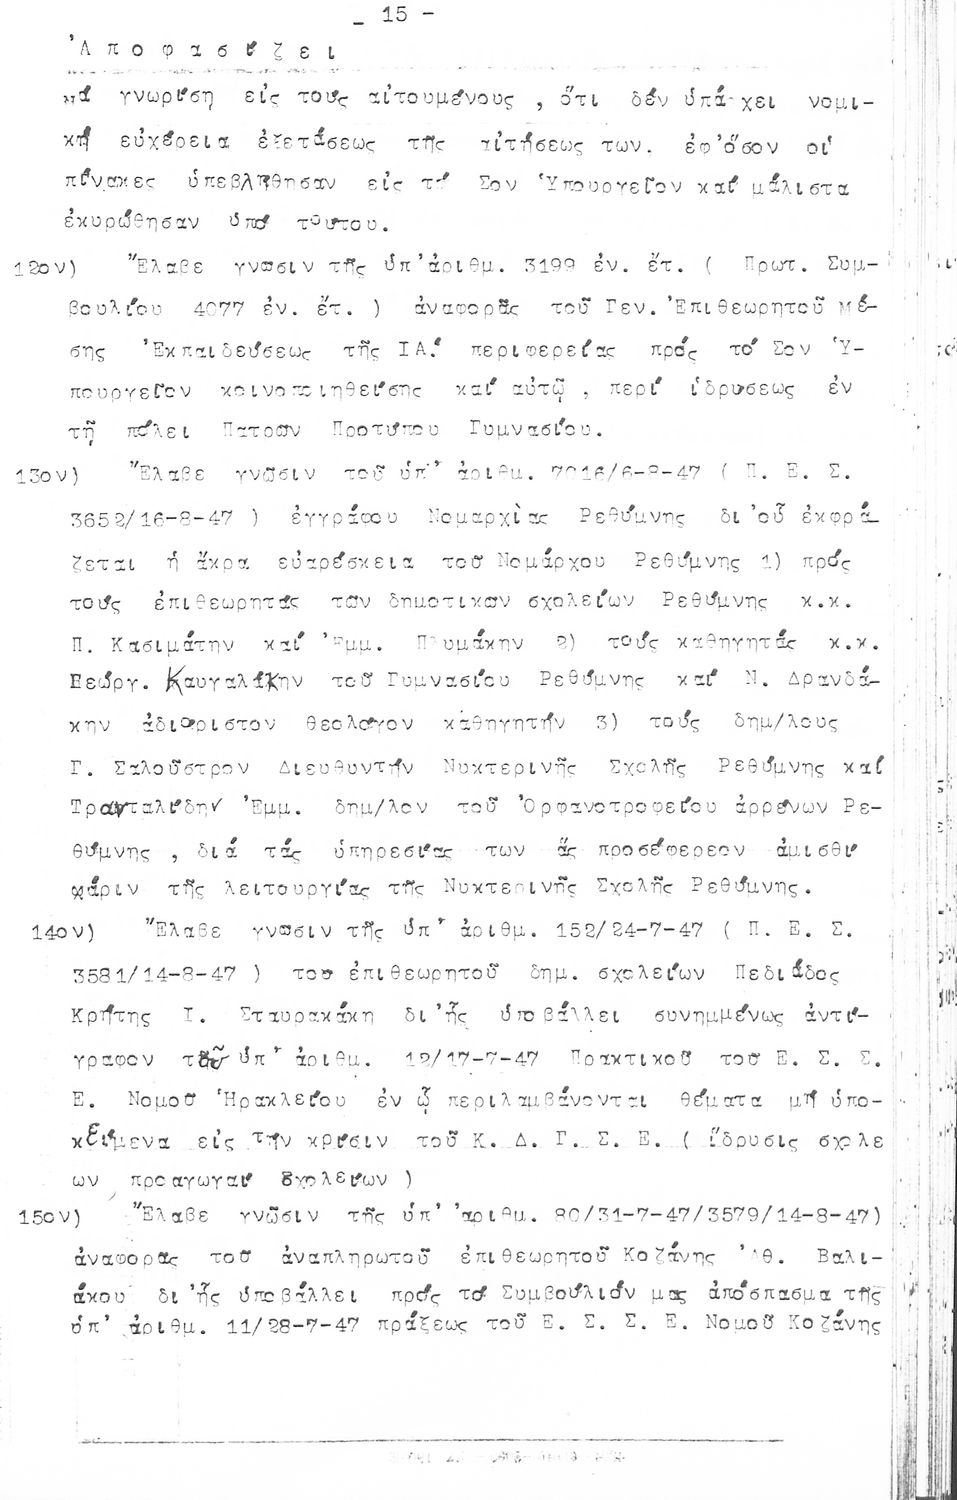 _ 15 -
Ἀ π ο φ α σ ί ζ ε ι
νά γνωρίση εἰς τούς αἰτουμένους , ὅτι δέν ὑπάρχει νομι-
κή εὐχέρεια ἐξετάσεως τῆς αἰτήσεως των. ἐφ'ὅσον οἱ
πίνακες ὑπεβλήθησαν εἰς τό Σον Ὑπουργεῖον καί μάλιστα
ἐκυρώθησαν ὑπό τούτου.
12ον) Ἔλαβε γνῶσιν τῆς ὑπ'ἀριθμ. 3199 ἐν. ἔτ. ( Πρωτ. Συμ-
βουλίου 4077 ἐν. ἔτ. ) ἀναφορᾶς τοῦ Γεν. Ἐπιθεωρητοῦ Μέ-
σης Ἐκπαιδεύσεως τῆς ΙΑ. περιφερείας πρός τό Σον Ὑ-
πουργεῖον κοινοποιηθείσης καί αὐτῷ , περί ἱδρύσεως ἐν
τῇ πόλει Πατρῶν Προτύπου Γυμνασίου.
13ον) Ἔλαβε γνῶσιν τοῦ ὑπ' ἀριθμ. 7016/6-8-47 ( Π. Ε. Σ.
3652/16-8-47 ) ἐγγράφου Νομαρχίας Ρεθύμνης δι'οὗ ἐκφρά_
ζεται ἡ ἄκρα εὐαρέσκεια τοῦ Νομάρχου Ρεθύμνης 1) πρός
τούς ἐπιθεωρητάς τῶν δημοτικῶν σχολείων Ρεθύμνης κ.κ.
Π. Κασιμάτην καί Ἐμμ. 2) τούς καθηγητάς κ.κ.
Γεώργ. Καυγαλάκην τοῦ Γυμνασίου Ρεθύμνης καί Ν. Δρανδά-
κην ἀδιόριστον θεολόγον καθηγητήν 3) τούς δημ/λους
Γ. Σαλοῦστρον Διευθυντήν Νυκτερινῆς Σχολῆς Ρεθύμνης καί
Τρανταλίδην Ἐμμ. δημ/λον τοῦ Ὀρφανοτροφείου ἀρρένων Ρε-
θύμνης , διά τάς ὑπηρεσίας των ἅς προσέφερεον ἀμισθί
χάριν τῆς λειτουργίας τῆς Νυκτερινῆς Σχολῆς Ρεθύμνης.
14ον) Ἔλαβε γνῶσιν τῆς ὑπ' ἀριθμ. 152/24-7-47 ( Π. Ε. Σ.
3581/14-8-47 ) τοῦ ἐπιθεωρητοῦ δημ. σχολείων Πεδιάδος
Κρήτης Ι. Σταυρακάκη δι'ἧς ὑποβάλλει συνημμένως ἀντί-
γραφον τοῦ ὑπ' ἀριθμ. 12/17-7-47 Πρακτικοῦ τοῦ Ε. Σ. Σ.
Ε. Νομοῦ Ἡρακλείου ἐν ᾧ περιλαμβάνονται θέματα μή ὑπο-
κείμενα εἰς τήν κρίσιν τοῦ Κ. Δ. Γ. Σ. Ε. ( ἵδρυσις σχολε
ων προαγωγαί σχολείων )
15ον) Ἔλαβε γνῶσιν τῆς ὑπ' ἀριθμ. 80/31-7-47/3579/14-8-47)
ἀναφορᾶς τοῦ ἀναπληρωτοῦ ἐπιθεωρητοῦ Κοζάνης Ἀθ. Βαλι-
άκου δι'ἧς ὑποβάλλει πρός τό Συμβούλιόν μας ἀπόσπασμα τῆς
ὑπ' ἀριθμ. 11/28-7-47 πράξεως τοῦ Ε. Σ. Σ. Ε. Νομοῦ Κοζάνης